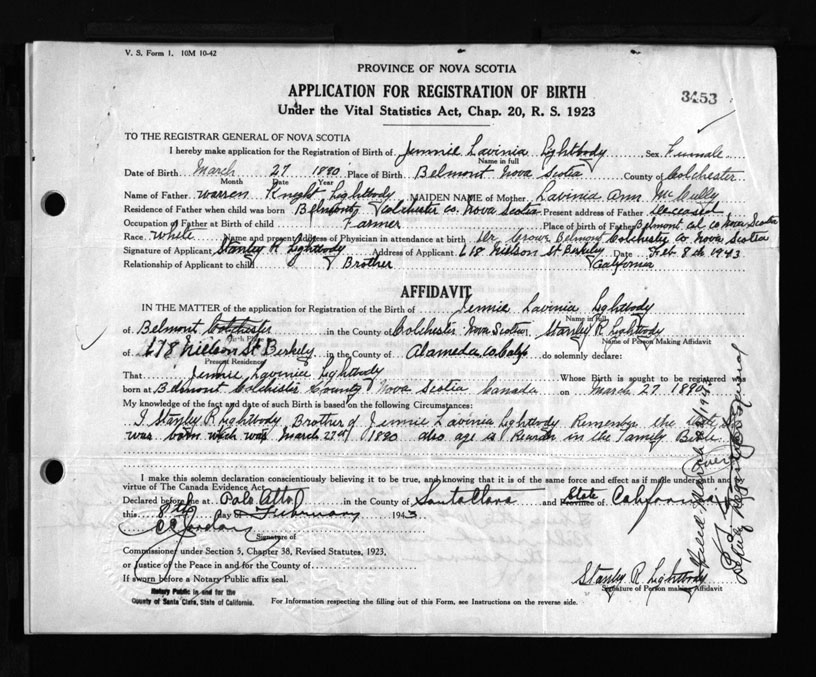 V. S. Form 1. 10M 10-42
PROVINCE OF NOVA SCOTIA
APPLICATION FOR REGISTRATION OF BIRTH
Under the Vital Statistics Act, Chap. 20, R. S. 1923
3453
TO THE REGISTRAR GENERAL OF NOVA SCOTIA
I hereby make application for the Registration of Birth of Jennie Lavinia Lightbody Sex Female
Name in full
Date of Birth March 27 1880 Place of Birth Belmont Nova Scotia County of Colchester
Month Date Year
Name of Father Warren Knight Lightbody MAIDEN NAME of Mother Lavinia Ann McCully
Residence of Father when child was born Belmont Colchester Co. Nova Scotia Present address of Father Deceased
Occupation of Father at Birth of child Farmer Place of birth of Father Belmont Col. Co Nova Scotia
Race White Name and present Address of Physician in attendance at birth Dr Crowe Belmont Colchester Co Nova Scotia
Signature of Applicant Stanley R Lightbody Address of Applicant 618 Nielson St Berkeley Date Feb. 8th 1943
Relationship of Applicant to child Brother California
AFFIDAVIT
IN THE MATTER of the application for Registration of the Birth of Jennie Lavinia Lightbody
Name in full
of Belmont Colchester in the County of Colchester Nova Scotia Stanley R Lightbody
Birth Place Name of Person Making Affidavit
of 678 Nielson St Berkely in the County of Alameda Co Calif do solemnly declare:
Present Residence
That Jennie Lavinia Lightbody Whose Birth is sought to be registered was
born at Belmont Colchester County Nova Scotia Canada on March 27 1880
My knowledge of the fact and date of such Birth is based on the following Circumstances:
I Stanley R Lightbody Brother of Jennie Lavinia Lightbody Remember the date
was born which was March 27th 1880 also age is in the Family Bible
over
I make this solemn declaration conscientiously believing it to be true, and knowing that it is of the same force and effect as if made under oath and
virtue of The Canada Evidence Act.
Declared before me at Palo Alto in the County of Santa Clara and State Province of California
this 8th day of February 1943
Signature of
Commissioner under Section 5, Chapter 38, Revised Statutes, 1923,
or Justice of the Peace in and for the County of
If sworn before a Notary Public affix seal.
Stanley R. Lightbody
Signature of Person making Affidavit
Notary Public in and for the
County of Santa Clara, State of California.
For Information respecting the filling out of this Form, see Instructions on the reverse side.